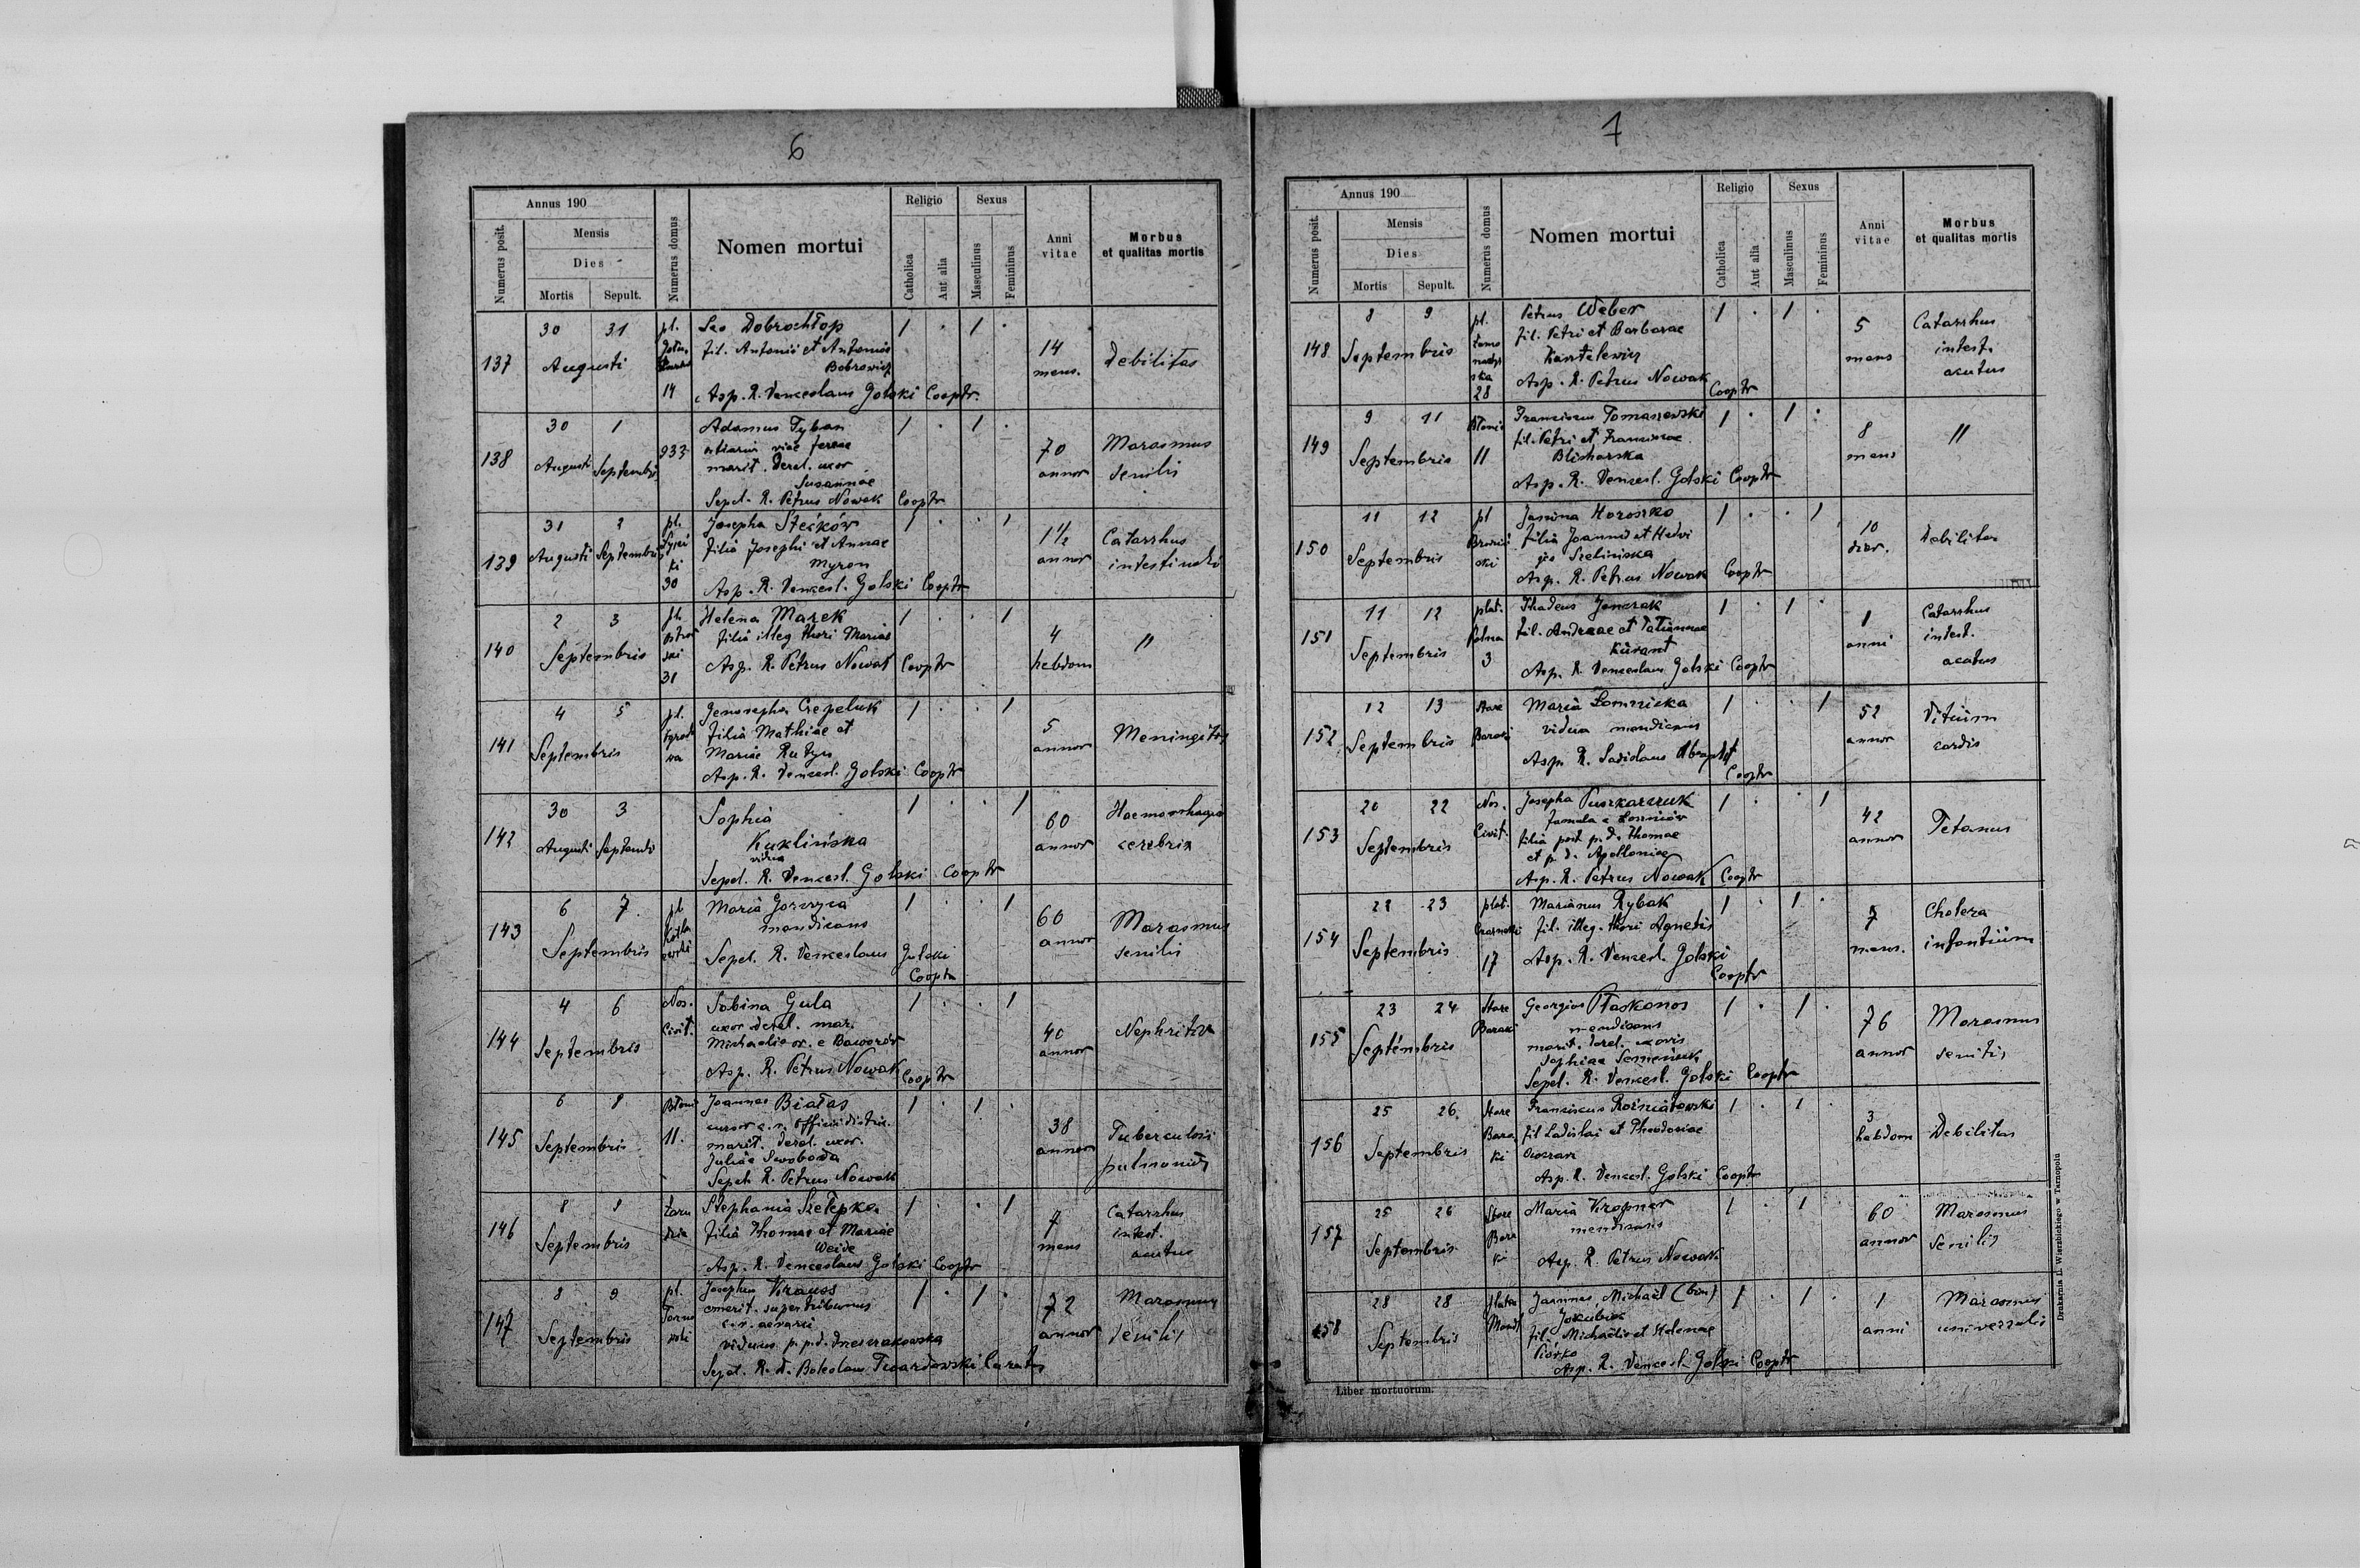 6
Annus 190
Numerus posit.
Mensis
Dies
Mortis Sepult.
Numerus domus
Nomen mortui
Religio
Catholica
Aut alia
Sexus
Masculinus
Femininus
Anni vitae
Morbus et qualitas mortis
137
30 31
Augusti
pl.
14
Leo Dobrochłop
fil. Antonii et Antoniae
Bobrowicz
Asp. R. Venceslaus Golski Cooptr.
1 . 1 .
14 mens.
Debilitas
138
30 1
Augusti Septembris
933
Adamus Tyban
ostiarius viae ferreae
marit. derel. uxor
Susannae
Sepel. R. Petrus Nowak Cooptr
1 . 1 .
70 annor
Marasmus senilis
139
31 2
Augusti Septembris
pl.
30
Josepha Stećków
filia Josephi et Annae
Myron
Asp. R. Vencesl. Golski Cooptr
1 . . 1
1½ annor
Catarrhus intestinalis
140
2 3
Septembris
pl.
31
Helena Marek
filia illeg. thori Mariae
Asp. R. Petrus Nowak Cooptr
1 . . 1
4 hebdom
"
141
4 5
Septembris
pl.
Ogrodowa
Genovepha Czepeluk
filia Mathiae et
Mariae Rutyn
Asp. R. Vencesl. Golski Cooptr
1 . . 1
5 annor
Meningitis
142
30 3
Augusti Septembris
Sophia
Kuklińska
vidua
Sepel. R. Vencesl. Golski Cooptr
1 . . 1
60 annor
Haemorrhagia cerebri
143
6 7.
Septembris
pl.
Maria Gorczyca
mendicans
Sepel. R. Venceslaus Golski
Cooptr
1 . . 1
60 annor
Marasmus senilis
144
4 6
Septembris
Nos.
Civit.
Sabina Gula
uxor derel. mar.
Michaelis or. e Baworów
Asp. R. Petrus Nowak Cooptr
1 . . 1
40 annor
Nephritis
145
6 8
Septembris
Błonie
11.
Joannes Białas
cursor c. r. officii district.
marit. derel. uxor.
Juliae Swoboda
Sepel. R. Petrus Nowak
1 . 1 .
38 annor
Tuberculosis pulmonum
146
8 9
Septembris
Stephania Szełepka
filia Thomae et Mariae
Weide
Asp. R. Venceslaus Golski Cooptr
1 . . 1
7 mens
Catarrhus intest. acutus
147
8 9
Septembris
pl.
Tarnowski
Josephus Krauss
emerit. supertribunus
c. r. aerarii
viduus p. p. d.
Sepel. R. D. Boleslaus Twardowski Curatus
1 . 1 .
72 annor
Marasmus senilis
7
Annus 190
Numerus posit.
Mensis
Dies
Mortis Sepult.
Numerus domus
Nomen mortui
Religio
Catholica
Aut alia
Sexus
Masculinus
Femininus
Anni vitae
Morbus et qualitas mortis
148
8 9
Septembris
pl.
28
Petrus Weber
fil. Petri et Barbarae
Kantelewicz
Asp. R. Petrus Nowak
Cooptr
1 . 1 .
5 mens
Catarrhus intest. acutus
149
9 11
Septembris
Błonie
11
Franciscus Tomaszewski
fil. Petri et Franciscae
Blicharska
Asp. R. Vencesl. Golski Cooptr
1 . 1 .
8 mens
"
150
11 12
Septembris
pl
Janina Horoszko
filia Joannis et Hedvigis
Szelińska
Asp. R. Petrus Nowak Cooptr
1 . . 1
10 dier.
Debilitas
151
11 12
Septembris
plat.
Polna
3
Thadeus Janczak
fil. Andreae et Tatiannae
Kurant
Asp. R. Venceslaus Golski Cooptr
1 . 1 .
1 anni
Catarrhus intest. acutus
152
12 13
Septembris
Stare
Baraki
Maria Łomnicka
vidua mendicans
Asp. R. Ladislaus
Cooptr
1 . . 1
52 annor
Vitium cordis
153
20 22
Septembris
Nos.
Civit.
Josepha Puszkarczuk
famula e
filia post p. d. Thomae
et p. d. Apolloniae
Asp. R. Petrus Nowak Cooptr
1 . . 1
42 annor
Tetanus
154
22 23
Septembris
plat.
17
Marianus Rybak
fil. illeg. thori Agnetis
Asp. R. Vencesl. Golski
Cooptr
1 . 1 .
7 mens.
Cholera infantium
155
23 24
Septembris
Stare
Baraki
Georgius Płaskonos
mendicans
marit. derel. uxoris
Sophiae Semeniuk
Sepel. R. Vencesl. Golski Cooptr
1 . 1 .
76 annor
Marasmus senilis
156
25 26.
Septembris
Stare
Baraki
Franciscus Rożniatowski
fil Ladislai et Theodoziae
Asp. R. Vencesl. Golski Cooptr
1 . 1 .
3 hebdom
Debilitas
157
25 26
Septembris
Stare
Baraki
Maria Kropner
mendicans
Asp. R. Petrus Nowak
1 . 1 .
60 annor
Marasmus senilis
158
28 28
Septembris
Joannes, Michael (bin)
Jakubiak
fil. Michaelis et Helenae
Piórko
Asp. R. Vencesl. Golski Cooptr
1 . 1 .
1 anni
Marasmus universalis
Liber mortuorum.
Drukarnia L. Wierzbickiego w Tarnopolu